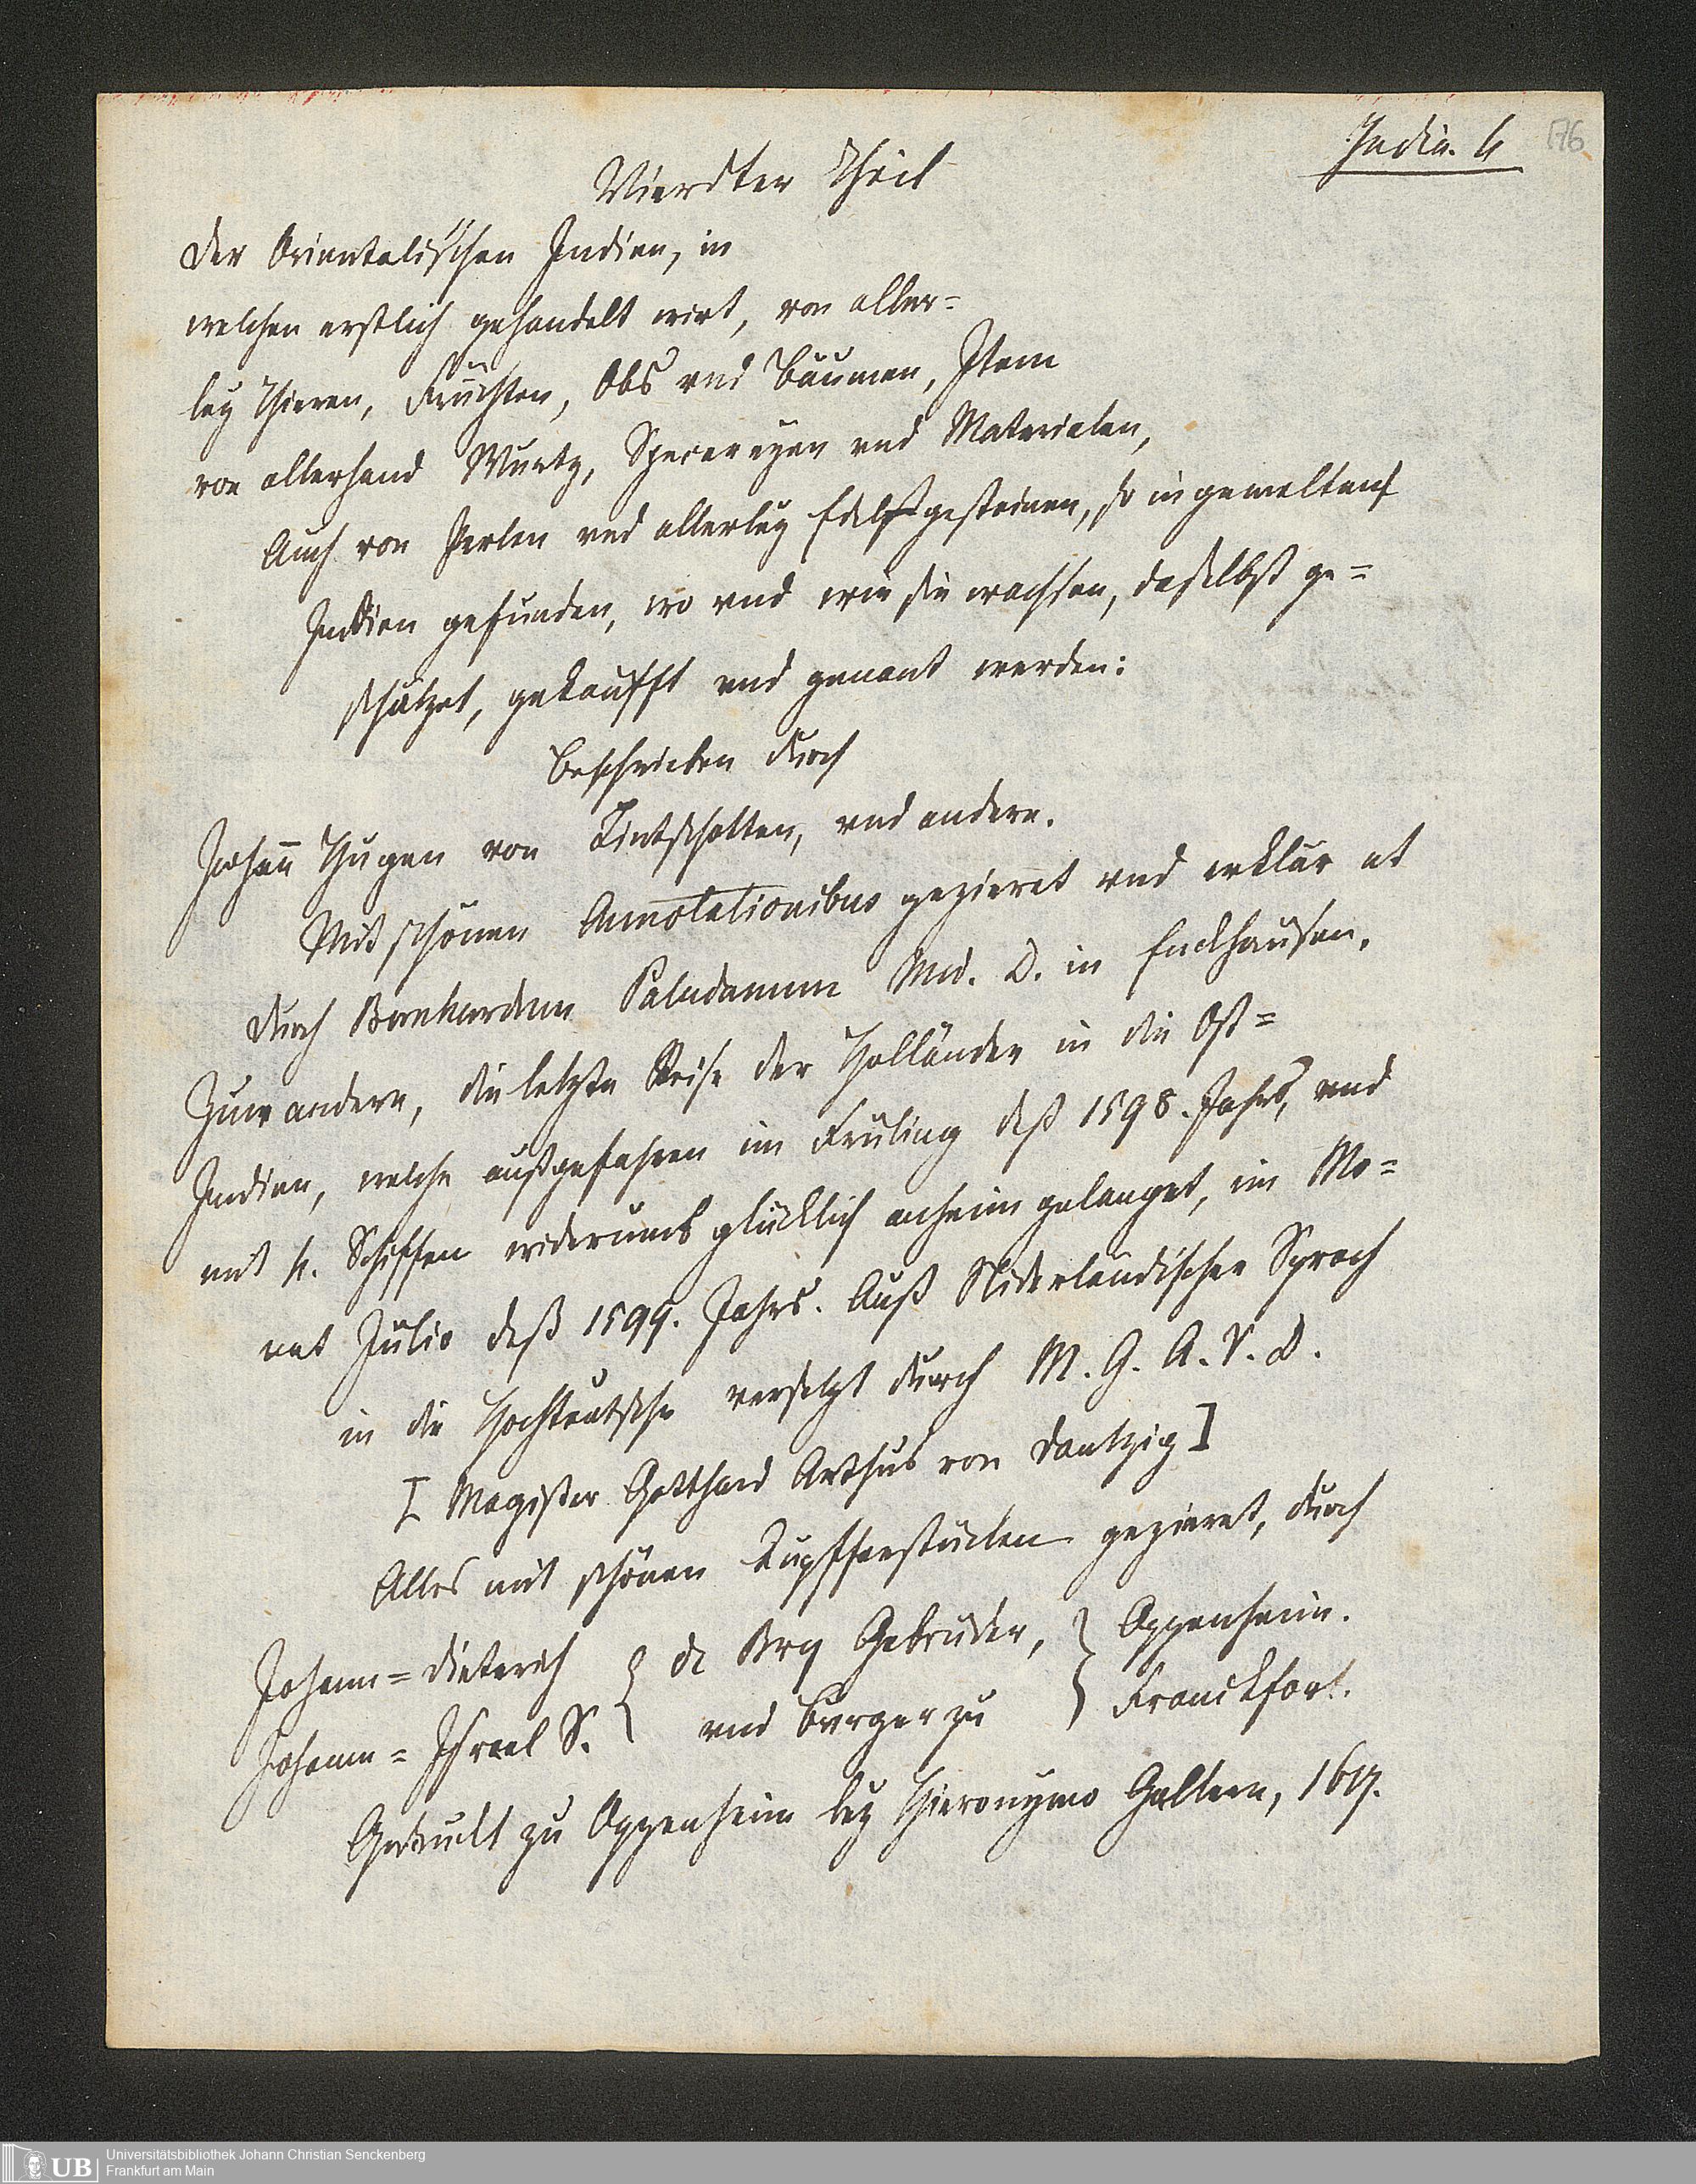 India. 4 176
Vierdter Theil
der Orientalischen Indien, in
welchen erstlich gehandelt wirt, von aller=
ley Thieren, Früchten, Obs vnd Bäumen, Item
von allerhand Wurtz, Specereyen vnd Materialen,
Auch von Perlen vnd allerley Edelgesteinen, so in gemelten
Indien gefunden, wo vnd wie sie wachsen, daselbst ge=
schätzet, gekaufft vnd genant werden:
Beschrieben durch
Johañ Hugen von Lintschotten, vnd andere.
Mit schönen Annotationibus gezieret vnd erklär et
durch Bernhardum Paludanum Med. D. in Enckhausen.
Zum andern, die letzte Reise der Holländer in die Ost=
Indien, welche außgefahren im Früling deß 1598. Jahrs, vnd
mit 4. Schiffen widerumb glücklich anheim gelanget, im Mo=
nat Julio deß 1599. Jahrs. Auß Niderländischer Sprach
in die Hochteutsche versetzt durch M. G. A. V. D.
[Magister Gotthard Arthus von Dantzig]
Alles mit schönen Kupfferstücken gezieret, durch
Johann=Dieterich { de Bry Gebrüder, } Oppenheim.
Johann=Israel S. { vnd Burger zu } Franckfort.
Getruckt zu Oppenheim bey Hieronymo Gallern, 1617.
UB Universitätsbibliothek Johann Christian Senckenberg
Frankfurt am Main